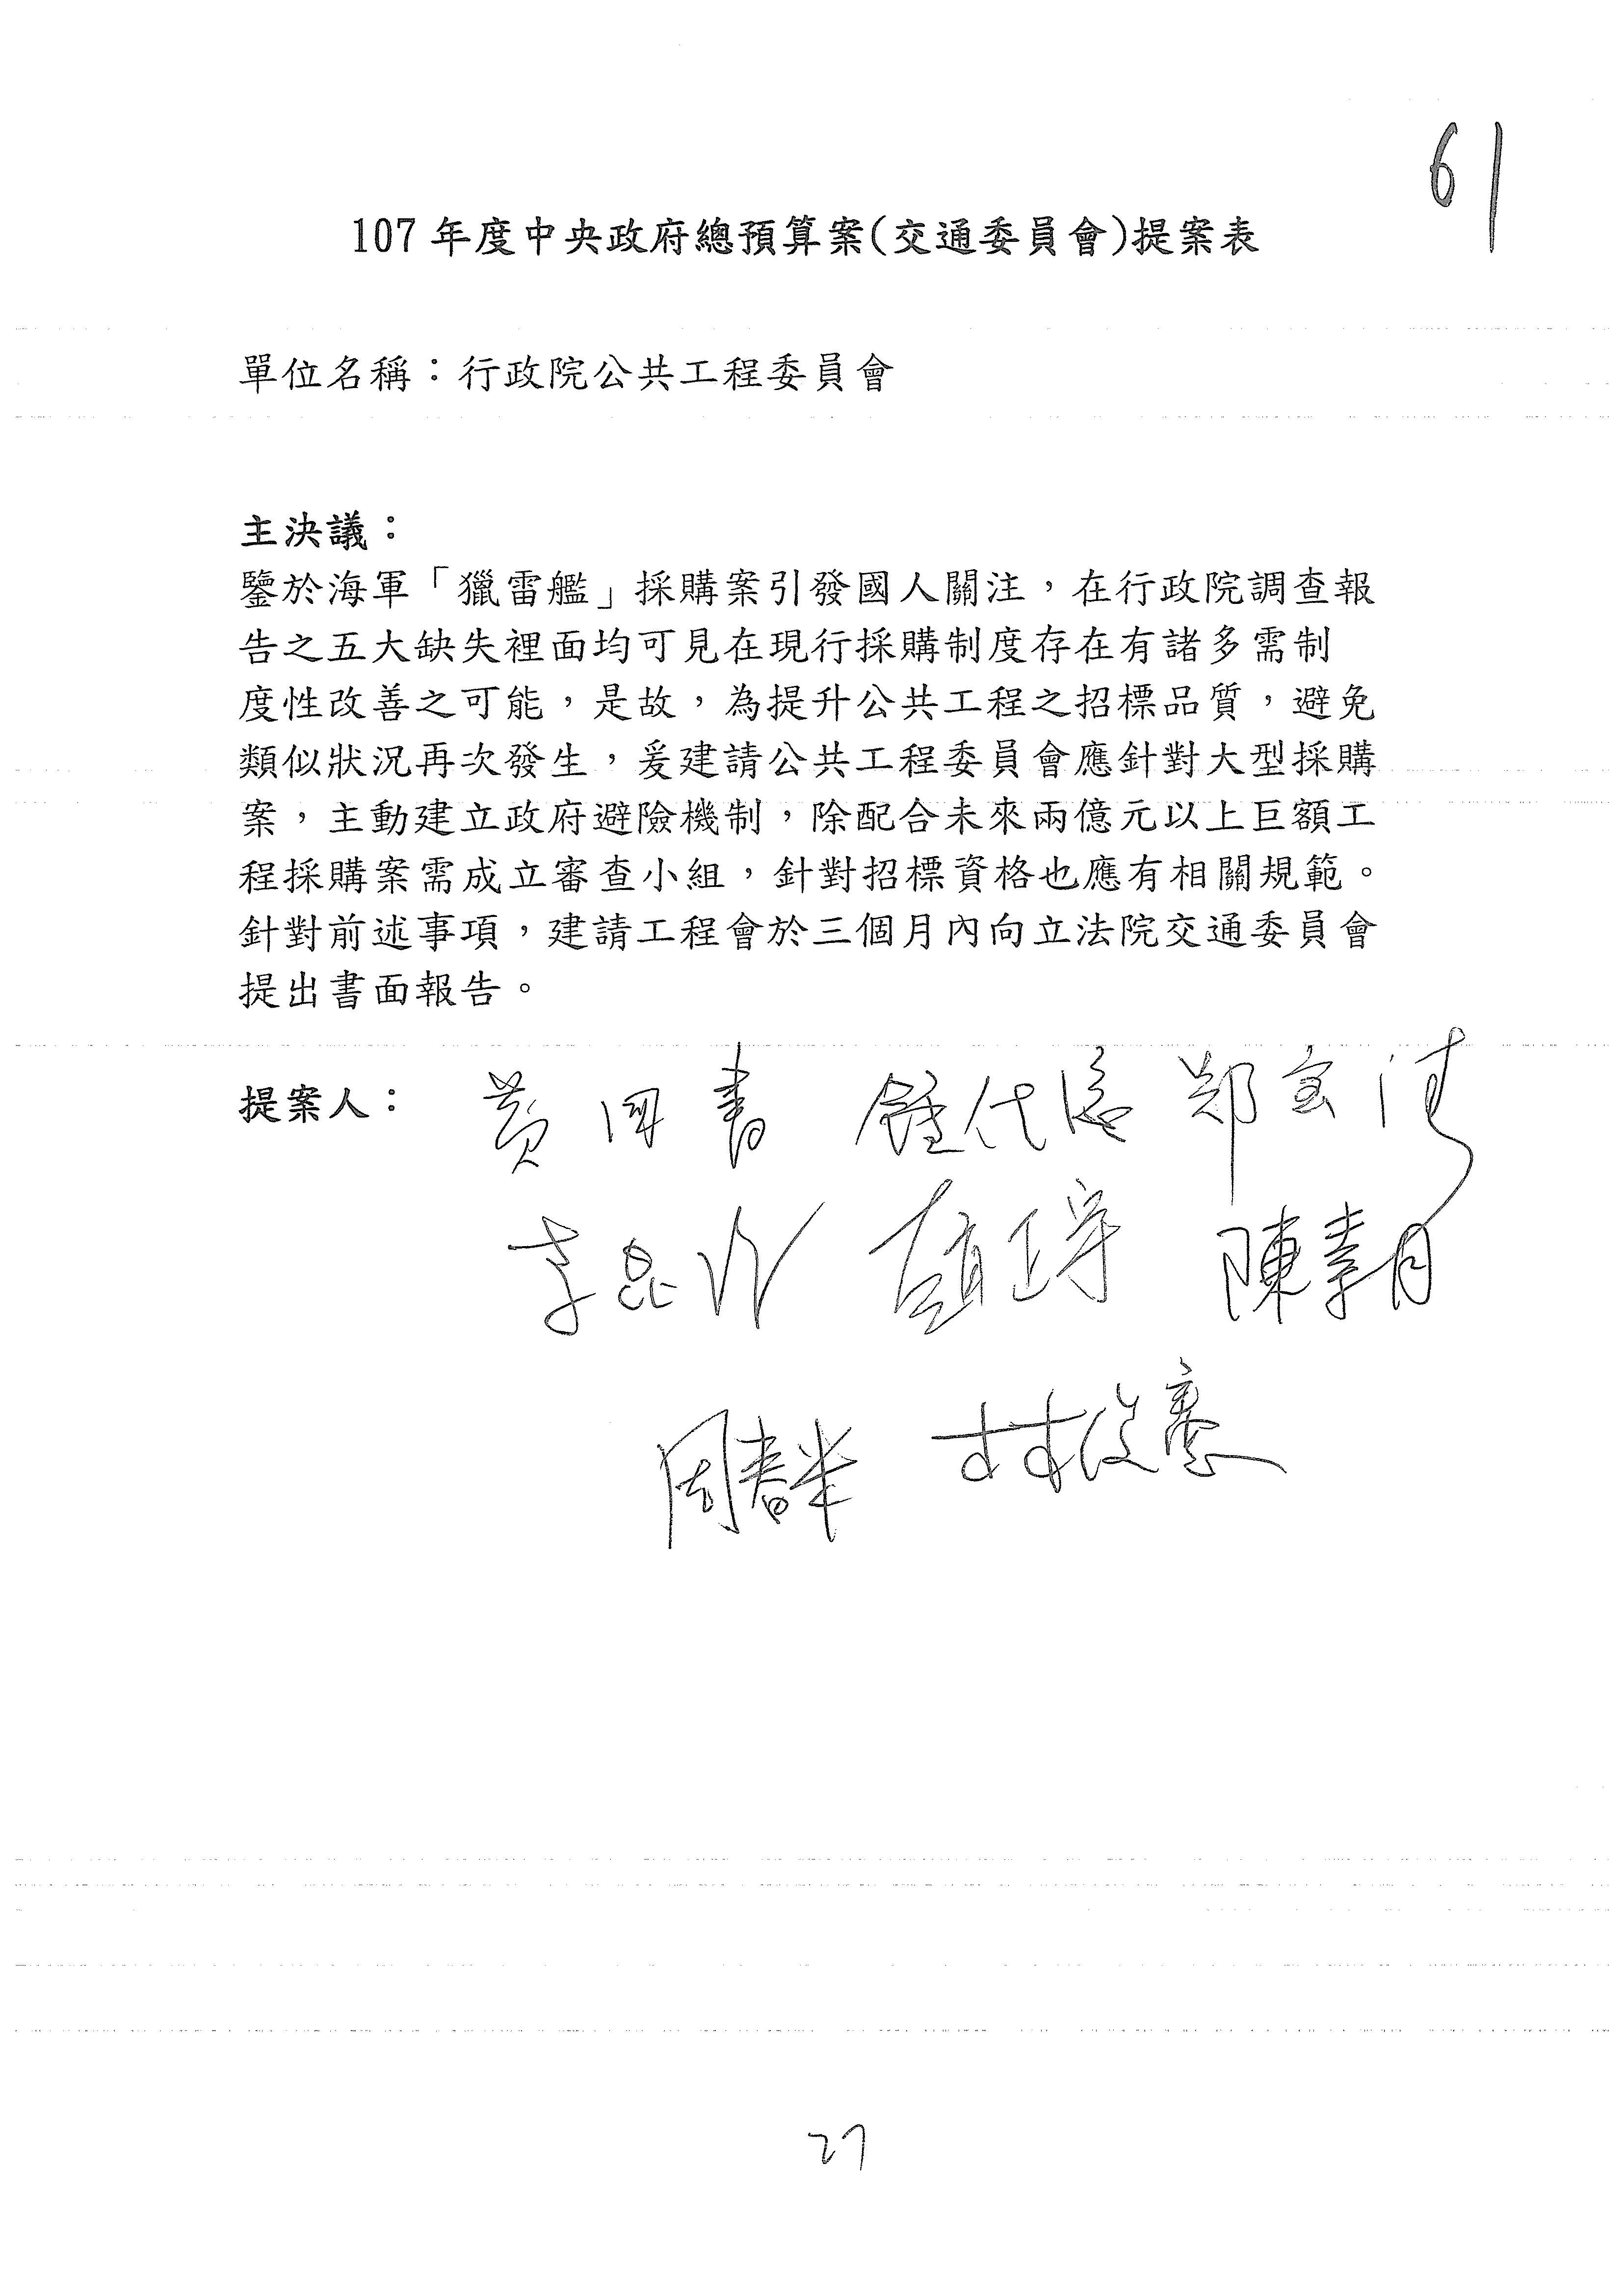 61
107年度中央政府總預算案(交通委員會)提案表
單位名稱：行政院公共工程委員會
主決議：
鑒於海軍「獵雷艦」採購案引發國人關注，在行政院調查報
告之五大缺失裡面均可見在現行採購制度存在有諸多需制
度性改善之可能，是故，為提升公共工程之招標品質，避免
類似狀況再次發生，爰建請公共工程委員會應針對大型採購
案，主動建立政府避險機制，除配合未來兩億元以上巨額工
程採購案需成立審查小組，針對招標資格也應有相關規範。
針對前述事項，建請工程會於三個月內向立法院交通委員會
提出書面報告。
提案人： 黃國書 鄭宝清
李昆 陳素月
周春米 林俊憲
27